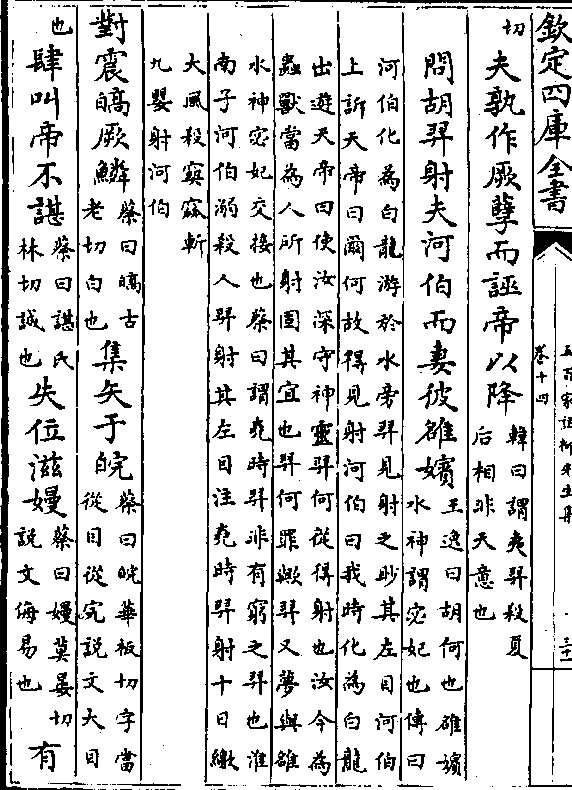 欽定四庫全書
五百家註柳先生集
卷十四
切
夫孰作厥孽而誣帝以降
韓曰謂夷羿殺夏
后相非天意也
問胡羿射夫河伯而妻彼雒嬪
王逸曰胡何也雒嬪
水神謂宓妃也傳曰
河伯化為白龍游於水旁羿見射之眇其左目河伯
上訴天帝曰爾何故得見射河伯曰我時化為白龍
出遊天帝曰使汝深守神靈羿何從得射也汝今為
蟲獸當為人所射固其宜也羿何罪歟羿又夢與雒
水神宓妃交接也蔡曰謂堯時羿非有窮之羿也淮
南子河伯溺殺人羿射其左目注堯時羿射十日繳
大風殺窫窳斬
九嬰射河伯
對震皜厥鱗
蔡曰皜古
老切白也
集矢于皖
蔡曰皖華板切字當
從目從完說文大目
也
肆叫帝不諶
蔡曰諶氏
林切誠也
失位滋嫚
蔡曰嫚莫晏切
說文侮易也
有